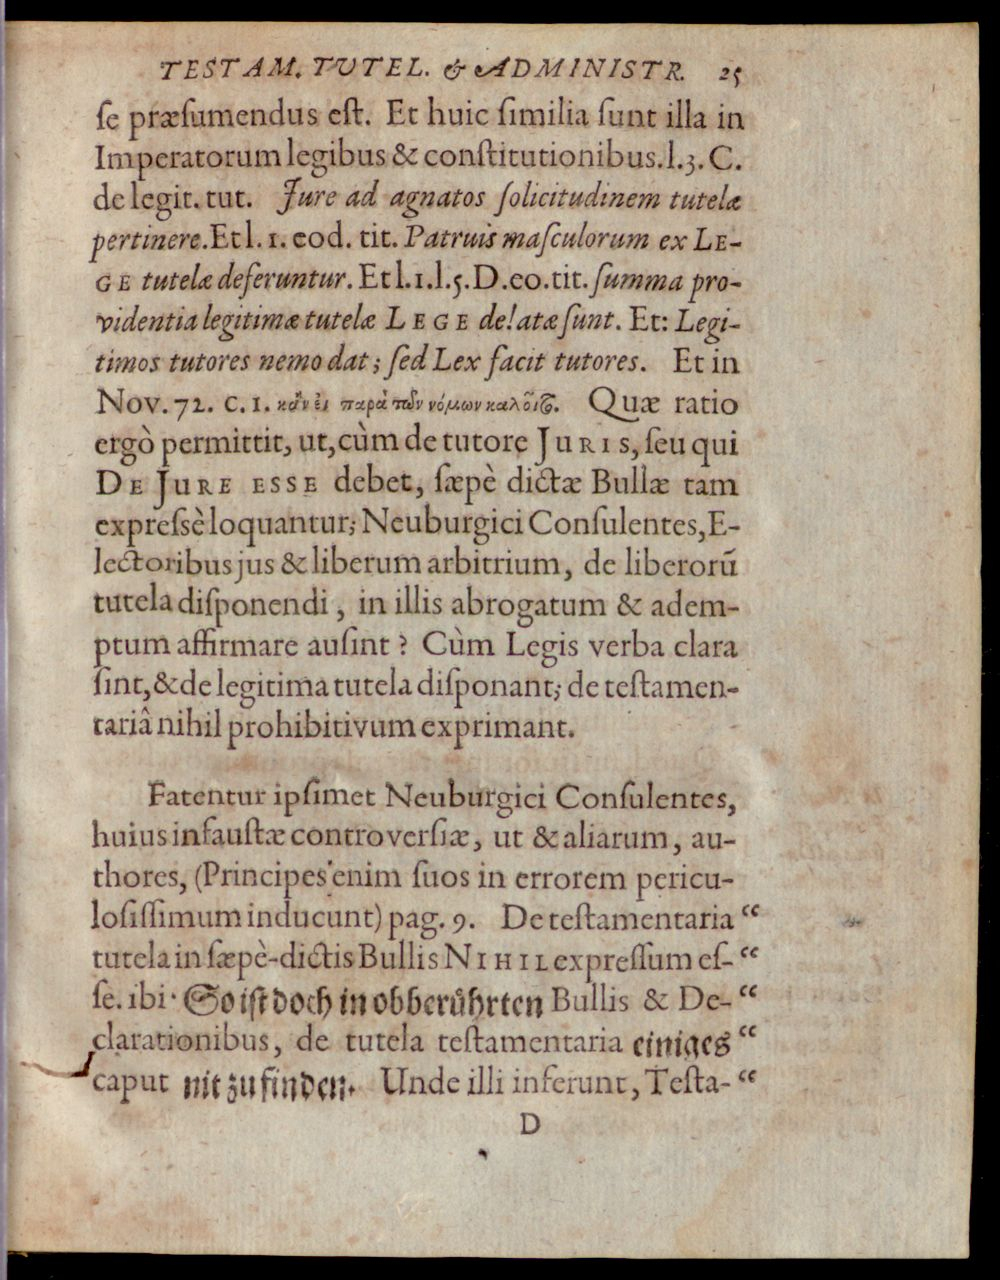 TESTAM. TUTEL. & ADMINISTR. 25
ſe præſumendus eſt. Et huic ſimilia ſunt illa in
Imperatorum legibus & conſtitutionibus. l. 3. C.
de legit. tut. Jure ad agnatos ſolicitudinem tutelæ
pertinere. Et l. 1. eod. tit. Patruis maſculorum ex LE-
GE tutelæ deferuntur. Et l. 1. l. 5. D. eo. tit. ſumma pro-
videntia legitimæ tutelæ LEGE delatæ ſunt. Et: Legi-
timos tutores nemo dat; ſed Lex facit tutores. Et in
Nov. 72. c. 1. Quæ ratio
ergò permittit, ut, cùm de tutore JURIS, ſeu qui
DE JURE ESSE debet, ſæpè dictæ Bullæ tam
expreſsè loquantur; Neuburgici Conſulentes, E-
lectoribus jus & liberum arbitrium, de liberorū
tutela diſponendi, in illis abrogatum & adem-
ptum affirmare auſint? Cùm Legis verba clara
ſint, & de legitima tutela diſponant; de teſtamen-
tariâ nihil prohibitivum exprimant.
Fatentur ipſimet Neuburgici Conſulentes,
huius infauſtæ controverſiæ, ut & aliarum, au-
thores, (Principes enim ſuos in errorem pericu-
loſiſſimum inducunt) pag. 9. De teſtamentaria “
tutela in ſæpè-dictis Bullis NIHIL expreſſum eſ- “
ſe. ibi. So iſt doch in obberůhrten Bullis & De- “
clarationibus, de tutela teſtamentaria einiges “
caput nit zu finden. Unde illi inferunt, Teſta- “
D